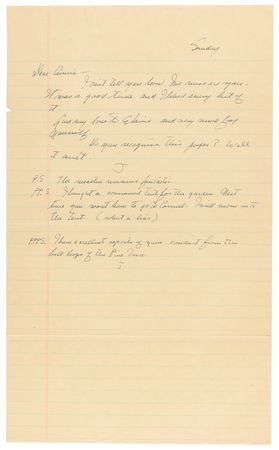 Sunday
Dear Annie —
I can't tell you how
It was a good time and I loved every bit of
it.
Give my love to and very much for
yourself.
Do you recognize this paper? Well
it ain't.
J
P.S. The weather remains fantastic.
P.P.S. I bought a command tent for the garden. Next
time you won't have to go to I will move into
the tent. (what a liar)
P.P.P.S. I have excellent reports of your conduct from the
bell boys of the Pine
J